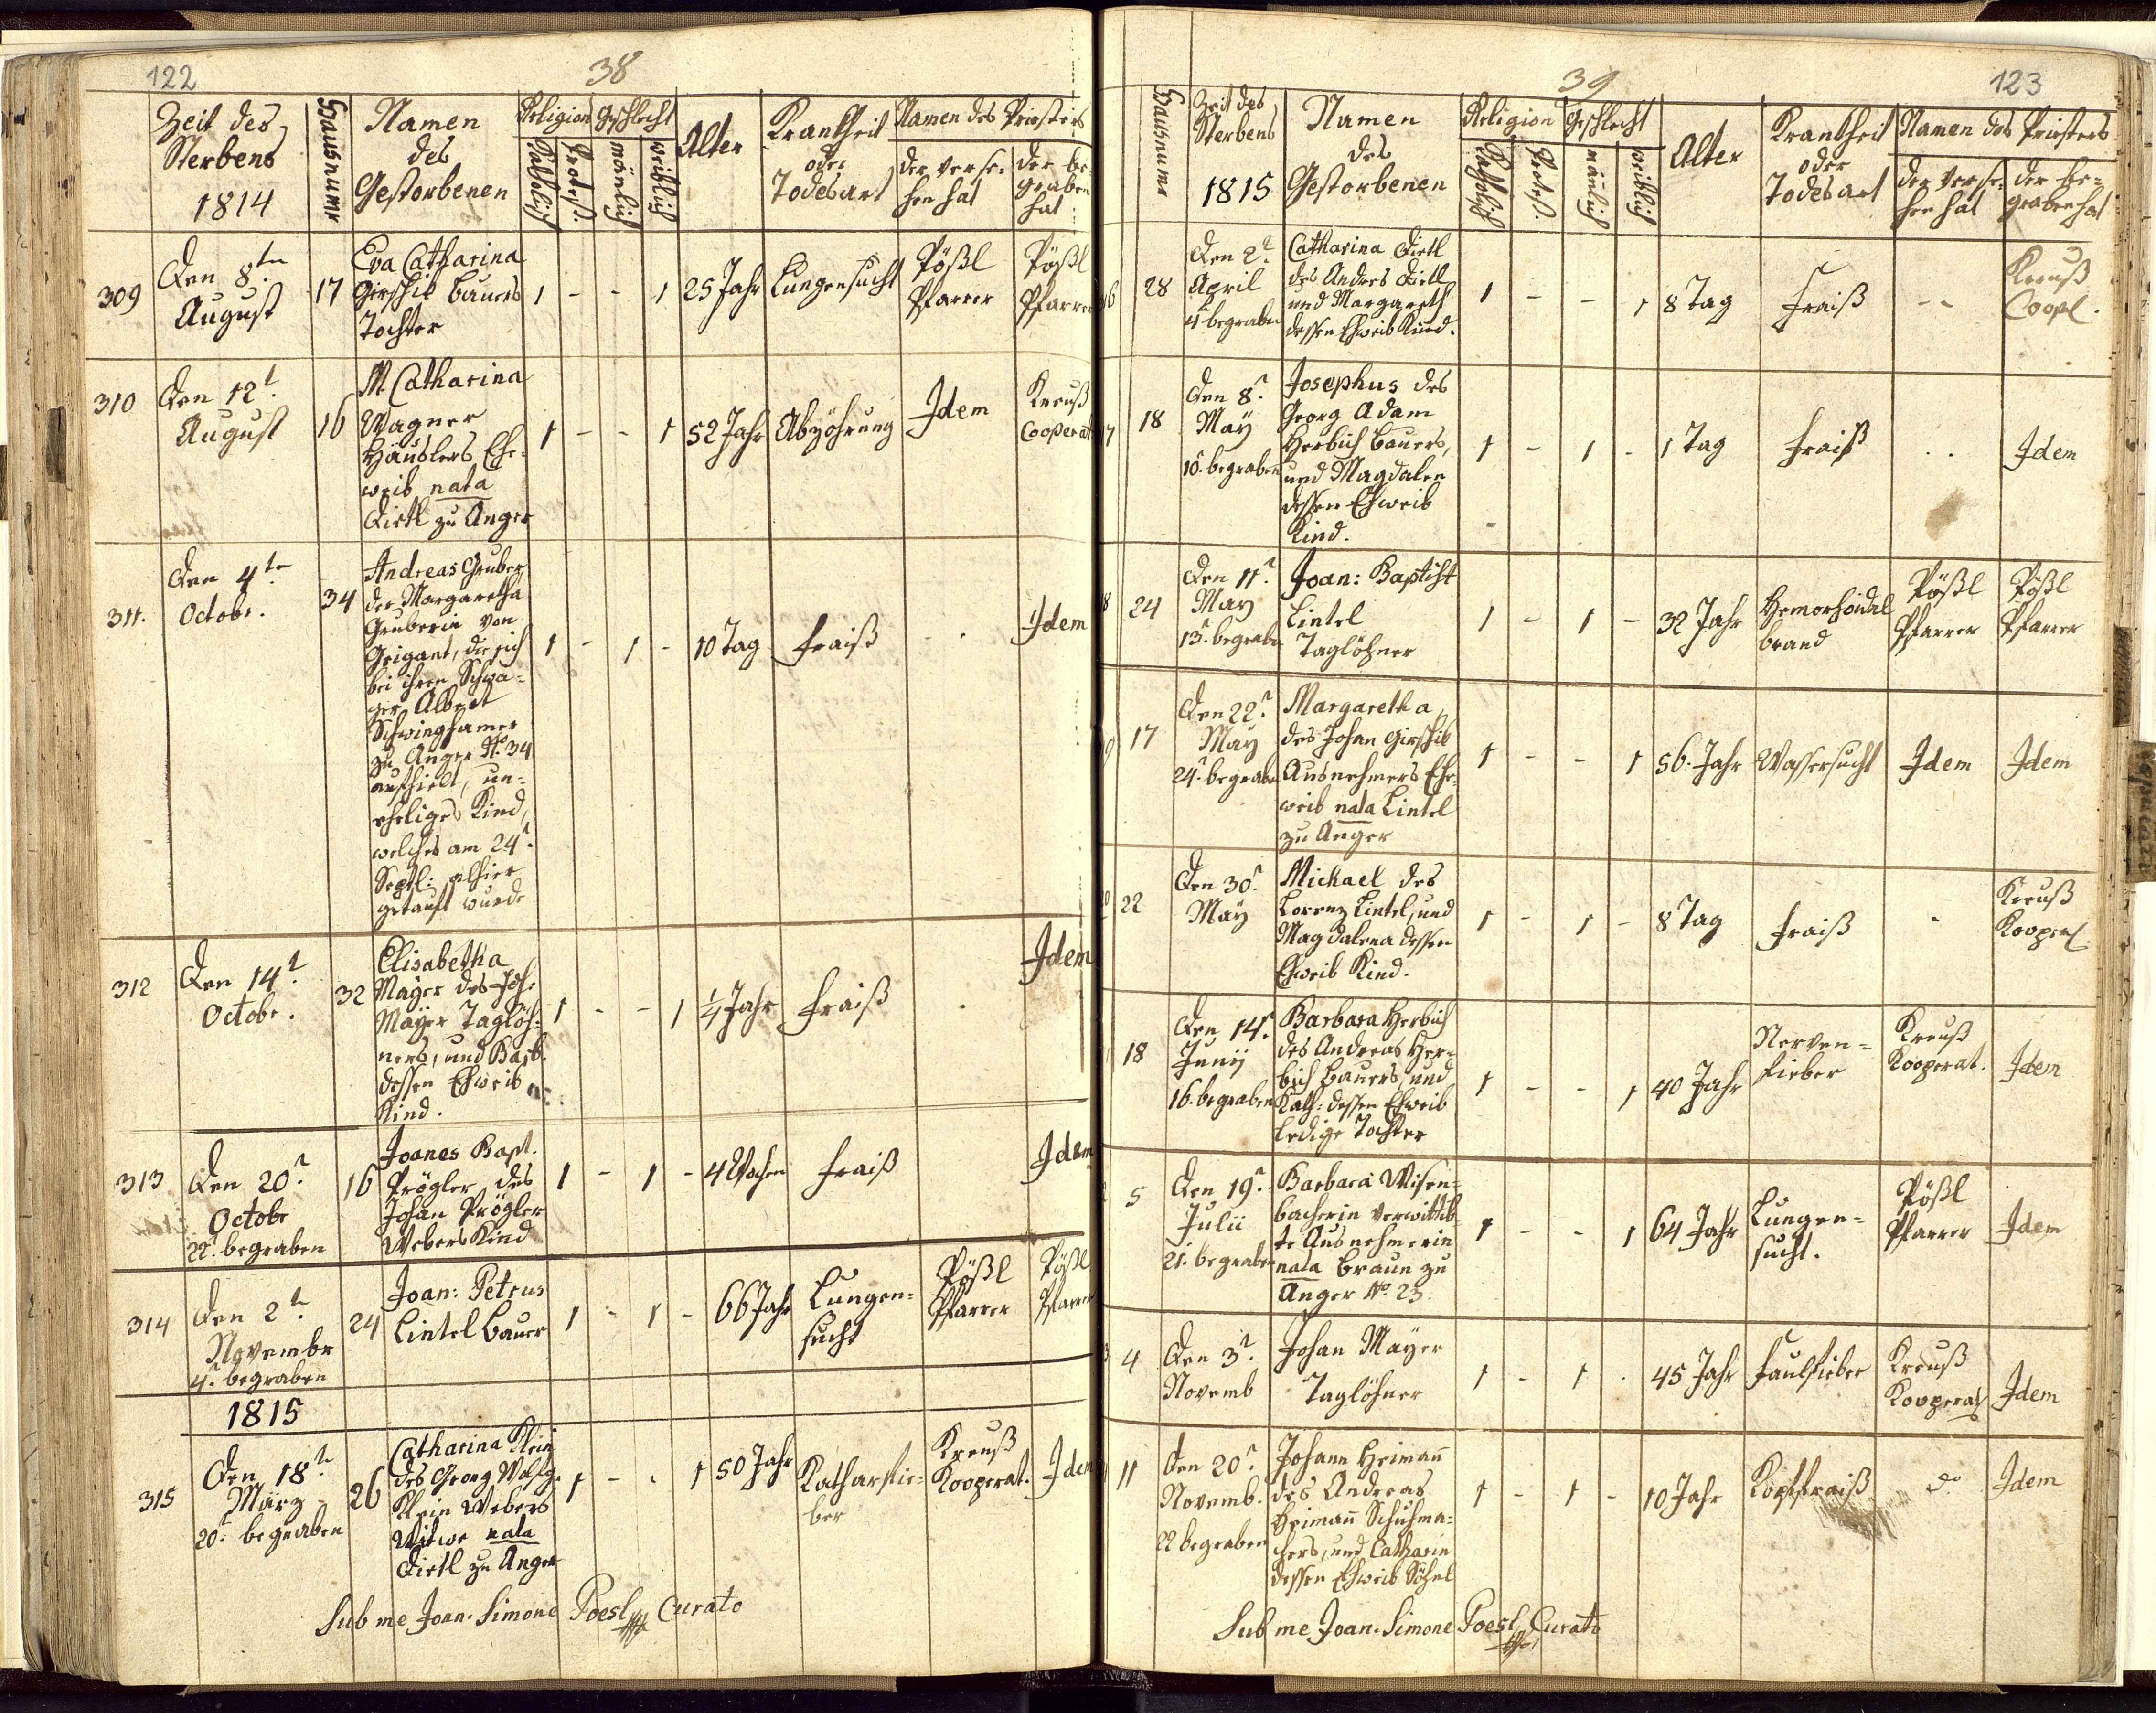 122
38
Zeit des Sterbens 1814
Hausnumr
Namen des Gestorbenen
Religion
Katholisch
Protest.
Geschlecht
mänlich
weiblich
Alter
Krankheit oder Todesart
Namen des Priesters
der verse-
hen hat
der be-
graben
hat
309
Den 8ten
August
17
Eva Catharina
Girschik Bauers
Tochter
1 - - 1
25 Jahr
Lungensucht
Pößl
Pfarrer
Pößl
Pfarrer
310
Den 12t
August
16
M Catharina
Wagner
Häuslers Ehe-
weib nata
Dietl zu Anger
1 - - 1
52 Jahr
Abzöhrung
Idem
Kreuß
Cooperat
311.
Den 4te
Octobr.
34
Andreas Gruber
der Margaretha
Gruberin von
Grigant, die sich
bei ihren Schwa-
ger Albert
Schwinghamer
zu Anger No. 34
aufhielt, un-
eheliges Kind,
welches am 24t
Septl: alhier
getauft wurde
1 - 1 -
10 Tag
Fraiß
Idem
312
Den 14t
Octobr.
32
Elisabetha
Mayer des Joh:
Mayer Taglöh-
ners, und Barb.
dessen Eheweib
Kind.
1 - - 1
1/4 Jahr
Fraiß
Idem
313
Den 20t
Octobr
22t begraben
16
Joanes Bapt.
Prögler, des
Johan Prögler
Webers Kind
1 - 1 -
4 Wochen
Fraiß
Idem
314
Den 2t
Novembr
4t begraben
24
Joan: Petrus
Lintel Bauer
1 - 1 -
66 Jahr
Lungen-
sucht
Pößl
Pfarrer
Pößl
Pfarrer
1815
315
Den 18t
März
20t begraben
26
Catharina Klein
des Georg Wolfg.
Klein Webers
Witwe nata
Dietl zu Anger
1 - . 1
50 Jahr
Katharfie-
ber
Kreuß
Kooperat.
Idem
Sub me Joan. Simone Poesl Curato
39
123
Hausnumr
Zeit des
Sterbens
1815
Namen
des
Gestorbenen
Religion
Katholisch
Protest.
Geschlecht
mänlich
weiblich
Alter
Krankheit
oder
Todesart
Namen des Priesters
der verse-
hen hat
der be-
graben hat
28
Den 2t
April
4t begraben
Catharina Dietl
des Andres Dietl
und Margareth
dessen Eheweib Kind.
1 - - 1
8 Tag
Fraiß
- -
Kreuß
Coopl.
18
Den 8t
May
10t begraben
Josephus des
Georg Adam
Herbich Bauers,
und Magdalen
dessen Eheweib
Kind.
1 - 1 -
1 Tag
Fraiß
. .
Idem
24
Den 11t
May
13t begraben
Joan: Baptist
Lintel
Taglöhner
1 - 1 -
32 Jahr
Hemorhoidal
brand
Pößl
Pfarrer
Pößl
Pfarrer
17
Den 22t
May
24t begraben
Margaretha
des Johan Girschik
Ausnehmers Ehe-
weib nata Lintel
zu Anger
1 - - 1
56. Jahr
Wassersucht
Idem
Idem
22
Den 30t
May
Michael des
Lorenz Lintel, und
Magdalena dessen
Eheweib Kind.
1 - 1 -
8 Tag
Fraiß
-
Kreuß
Kooperat.
18
Den 14t
Junij
16. begraben
Barbara Herbich
des Andreas Her-
bich Bauers, und
Kath: dessen Eheweib
ledige Tochter
1 - - 1
40 Jahr
Nerven-
fieber
Kreuß
Kooperat.
Idem
5
Den 19t
Julii
21. begraben
Barbara Wisen-
bacherin verwittib-
te Ausnehmerin
nata Braun zu
Anger No. 23.
1 - - 1
64 Jahr
Lungen-
sucht.
Pößl
Pfarrer
Idem
4
Den 3t
Novemb
Johan Mayer
Taglöhner
1 - 1 .
45 Jahr
Faulfieber
Kreuß
Kooperat
Idem
11
Den 20t
Novemb.
22 begraben
Johann Heiman̄
des Andreas
Heiman̄ Schuhma-
chers, und Catharin
dessen Eheweib Söhnl
1 - 1 -
10 Jahr
Kopffraiß
do
Idem
Sub me Joan. Simone Poesl Curato